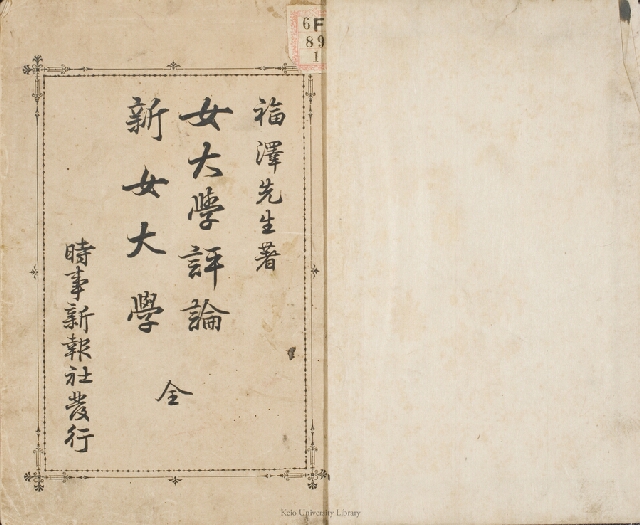 福澤先生著
女大學評論
新女大學
全
時事新報社發行
6F
89
1
Keio University Library